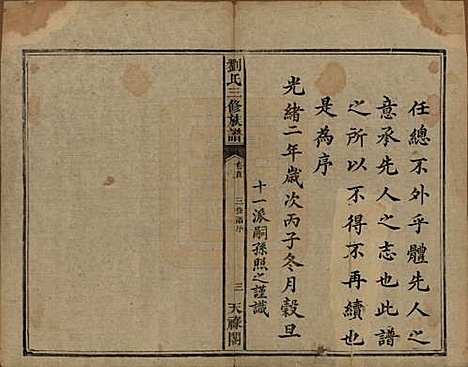 任總不外乎體先人之
意承先人之志也此譜
之所以不得不再續也
是為序
光緒二年歲次丙子冬月穀旦
十一派嗣孫照之謹識
劉氏三修族譜
卷首
三修譜序
三
天祿閣